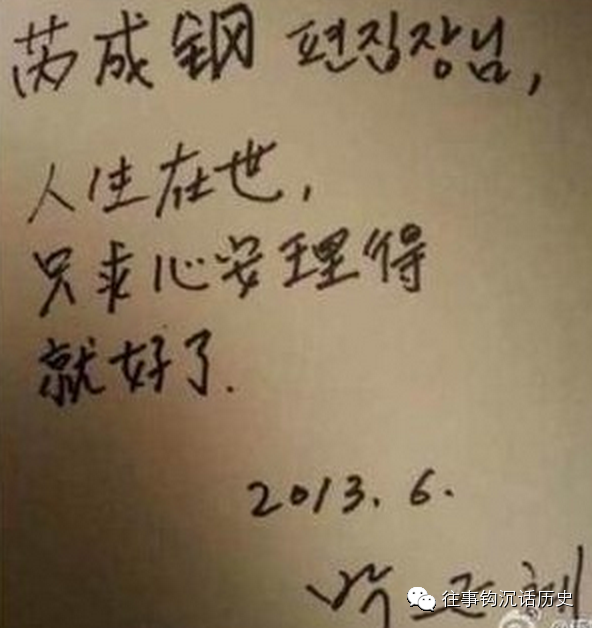 芮成钢 편집장님,
人生在世,
只求心安理得
就好了.
2013. 6.
往事钩沉话历史